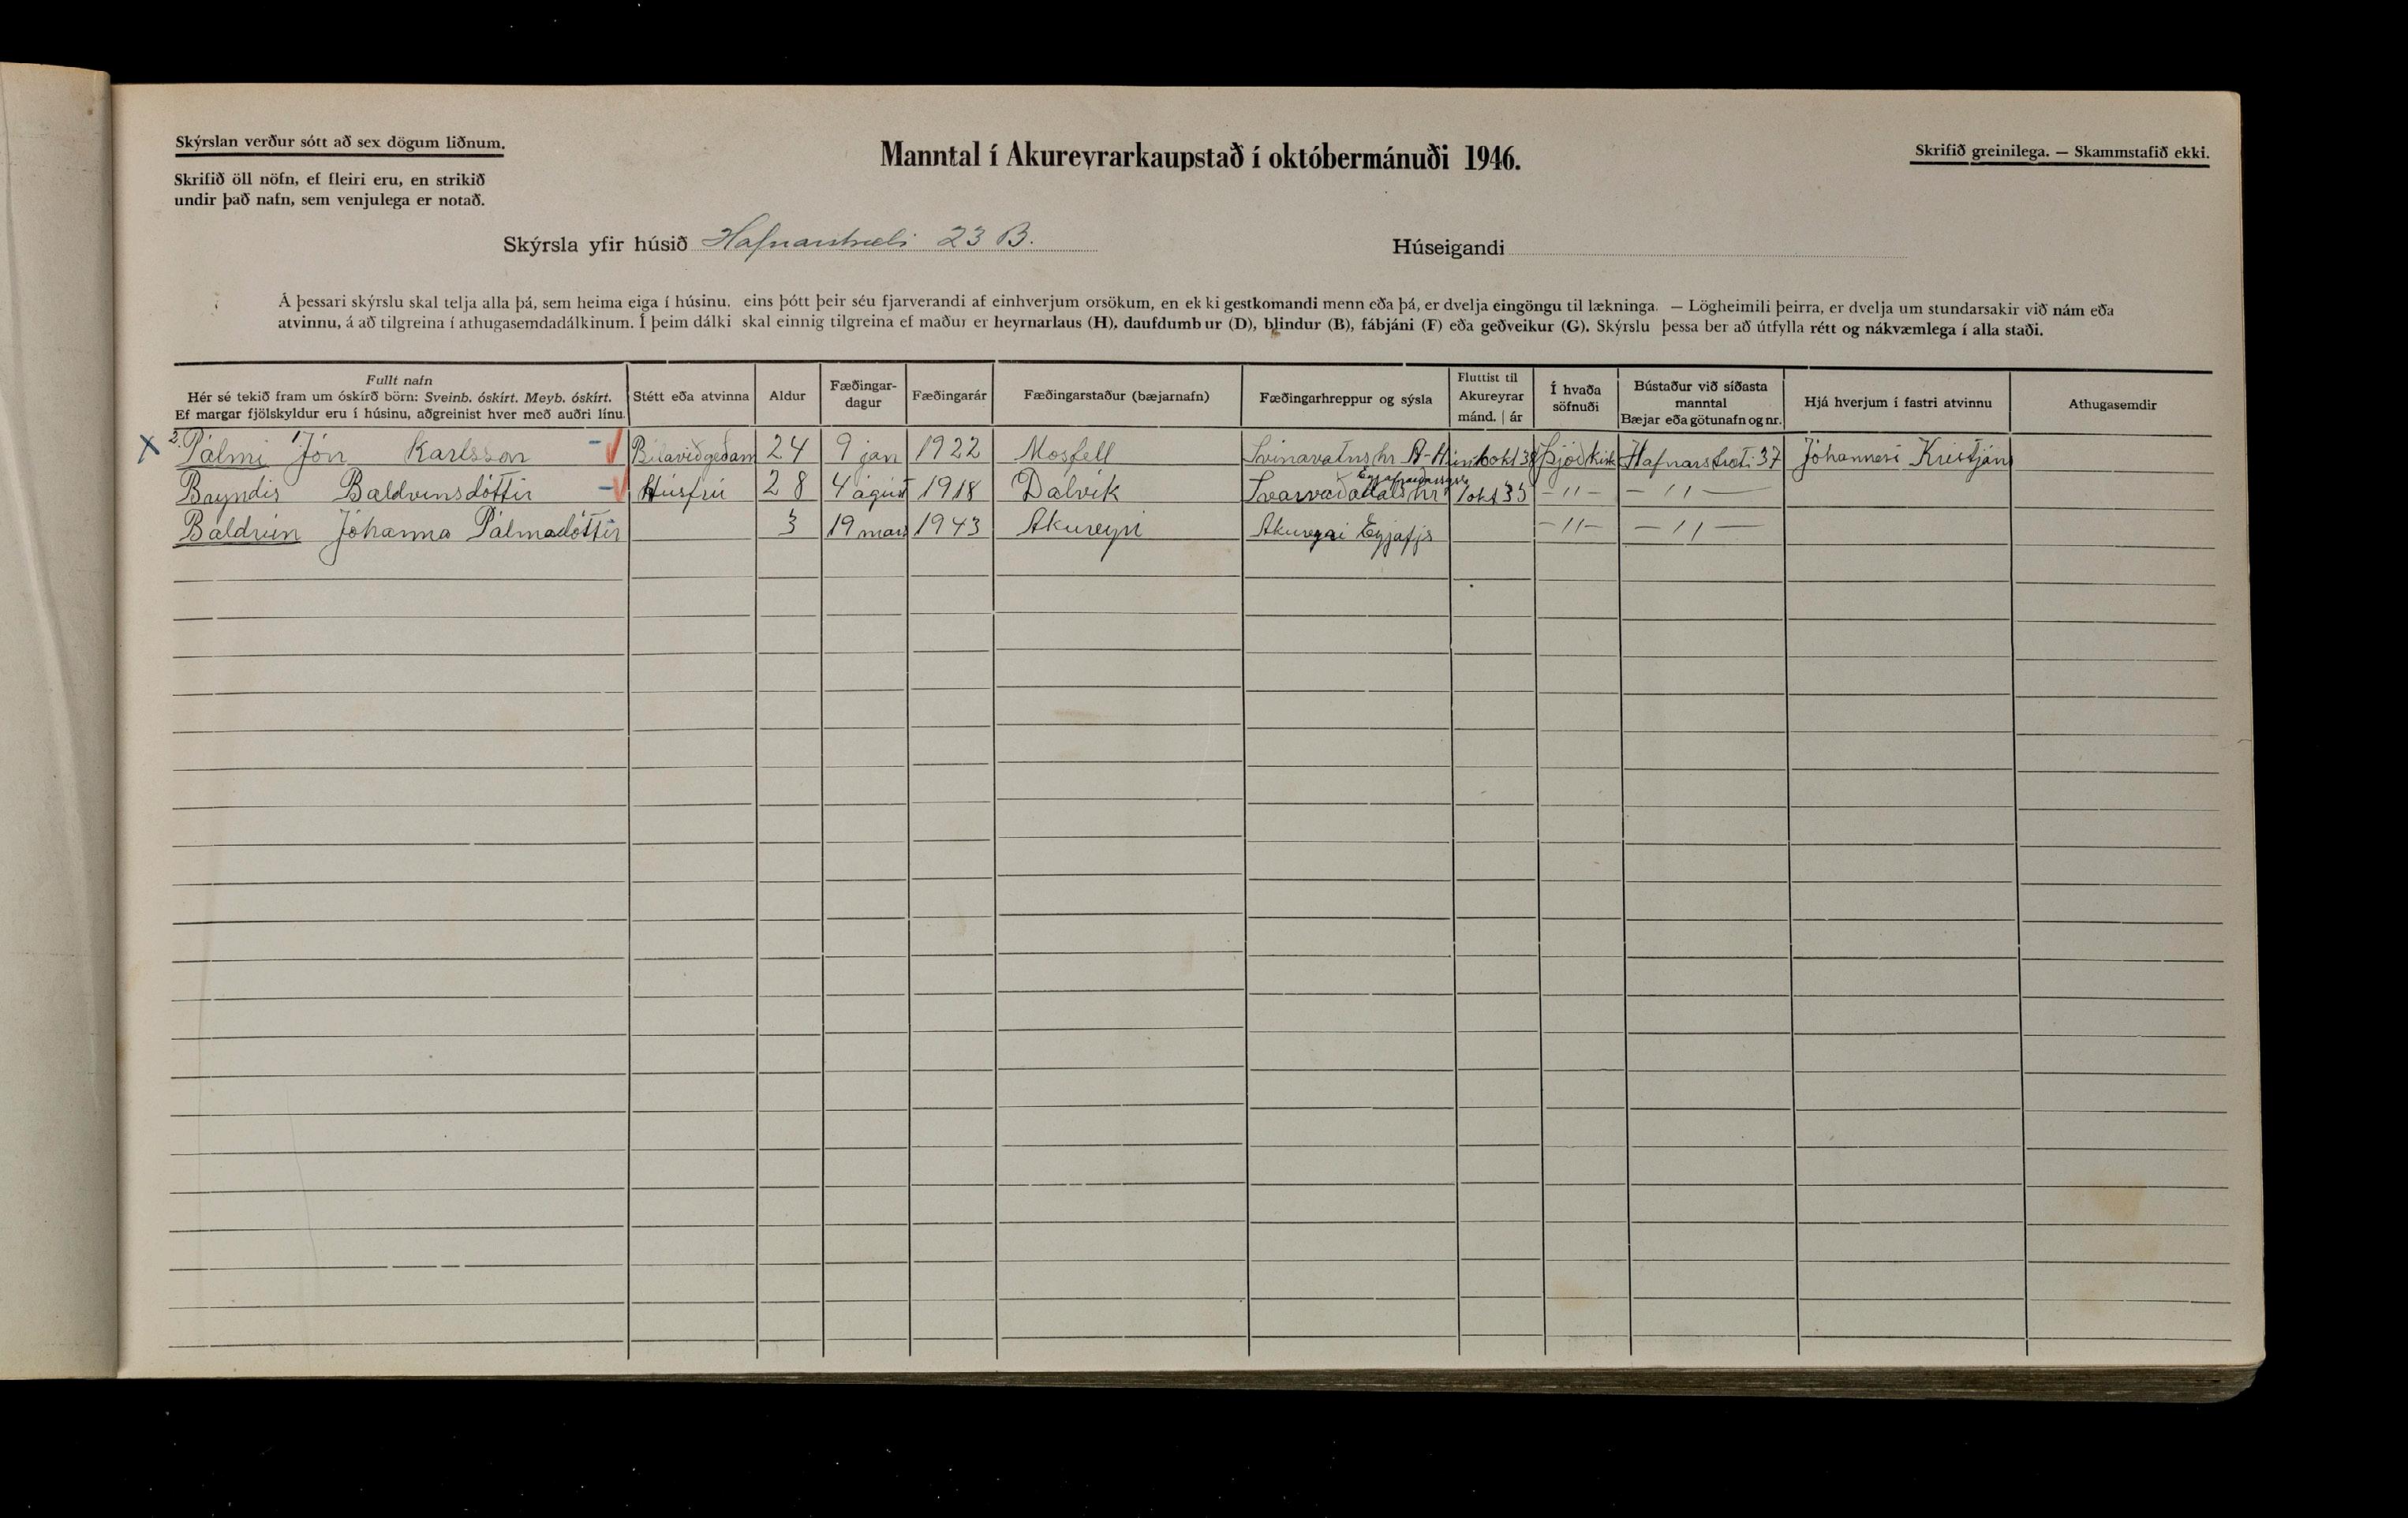 Skýrslan verður sótt að sex dögum liðnum.
Skrifið öll nöfn, ef fleiri eru, en strikið
undir það nafn, sem venjulega er notað.
Manntal í Akureyrarkaupstað í októbermánuði 1946.
Skrifið greinilega. — Skammstafið ekki.
Skýrsla yfir húsið Hafnarstræti 23 B.
Húseigandi
Á þessari skýrslu skal telja alla þá, sem heima eiga í húsinu, eins þótt þeir séu fjarverandi af einhverjum orsökum, en ekki gestkomandi menn eða þá, er dvelja eingöngu til lækninga. — Lögheimili þeirra, er dvelja um stundarsakir við nám eða
atvinnu, á að tilgreina í athugasemdadálkinum. Í þeim dálki skal einnig tilgreina ef maður er heyrnarlaus (H), daufdumbur (D), blindur (B), fábjáni (F) eða geðveikur (G). Skýrslu þessa ber að útfylla rétt og nákvæmlega í alla staði.
Fullt nafn
Hér sé tekið fram um óskírð börn: Sveinb. óskírt. Meyb. óskírt.
Ef margar fjölskyldur eru í húsinu, aðgreinist hver með auðri línu.
Stétt eða atvinna
Aldur
Fæðingar-
dagur
Fæðingarár
Fæðingarstaður (bæjarnafn)
Fæðingarhreppur og sýsla
Fluttist til
Akureyrar
mánd. | ár
Í hvaða
söfnuði
Bústaður við síðasta
manntal
Bæjar eða götunafn og nr.
Hjá hverjum í fastri atvinnu
Athugasemdir
X 2. Pálmi 1. Jón Karlsson -√ Bílaviðgerðam 24 9 jan 1922 Mosfell Svínavatnshr A-Hún okt 38 Þjóðkirk Hafnarstræti 37 Jóhannesi Kristjáns
Bryndís Baldvinsdóttir -√ Húsfrú 28 4 ágúst 1918 Dalvík Svarvaðadalshr Eyjafjarðarsýslu 1 okt 35 -"- -"-
Baldrún Jóhanna Pálmadóttir 3 19 mars 1943 Akureyri Akureyri Eyjafjs -"- -"-